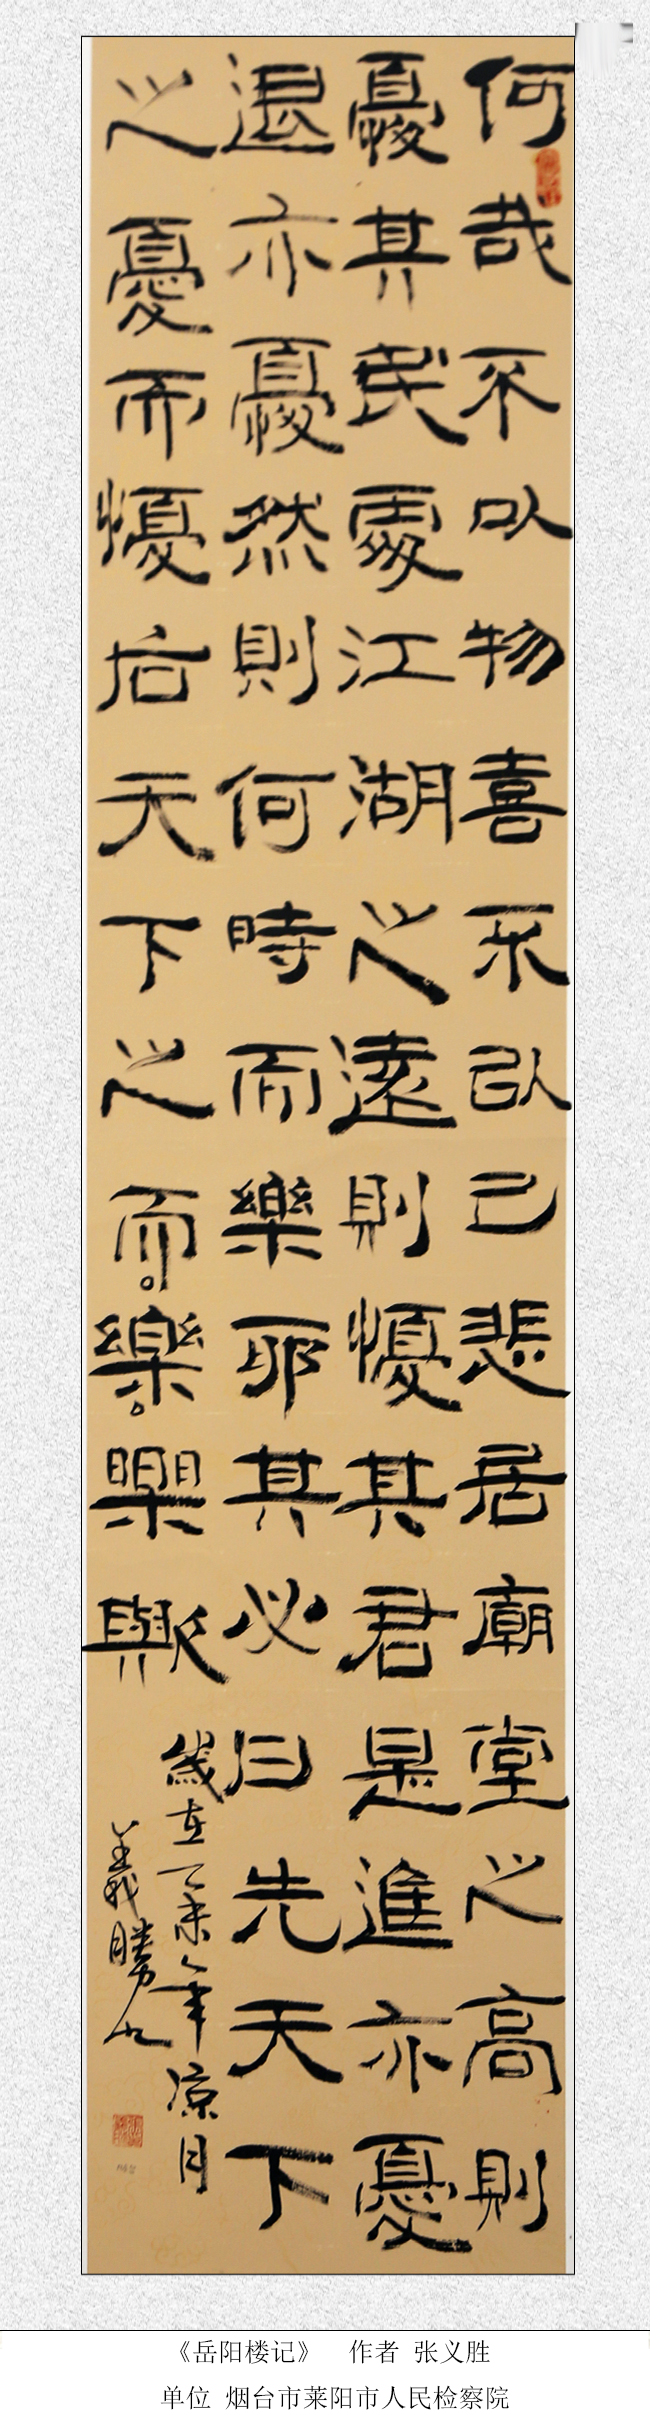 何哉不以物喜不以己悲居廟堂之高則
憂其民處江湖之遠則懮其君是進亦憂
退亦憂然則何時而樂耶其必曰先天下
之憂而懮后天下之而樂樂歟
歲在乙未年凉月
義勝书
《岳阳楼记》 作者 张义胜
单位 烟台市莱阳市人民检察院